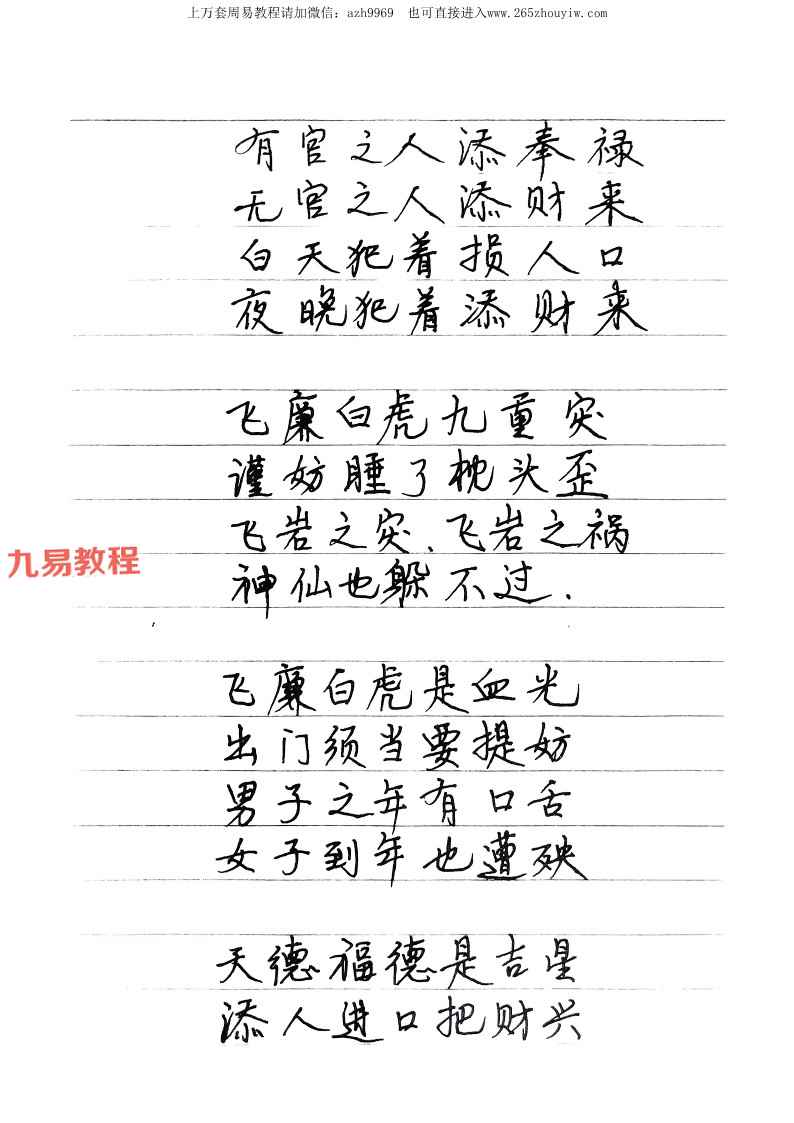 上万套周易教程请加微信：azh9969 也可直接进入www.265zhouyiw.com
有官之人添奉禄
无官之人添财来
白天犯着损人口
夜晚犯着添财来
飞廉白虎九重灾
谨妨睡了枕头歪
飞岩之灾、飞岩之祸
九易教程
神仙也躲不过.
飞廉白虎是血光
出门须当要提妨
男子之年有口舌
女子到年也遭殃
天德福德是吉星
添人进口把财兴